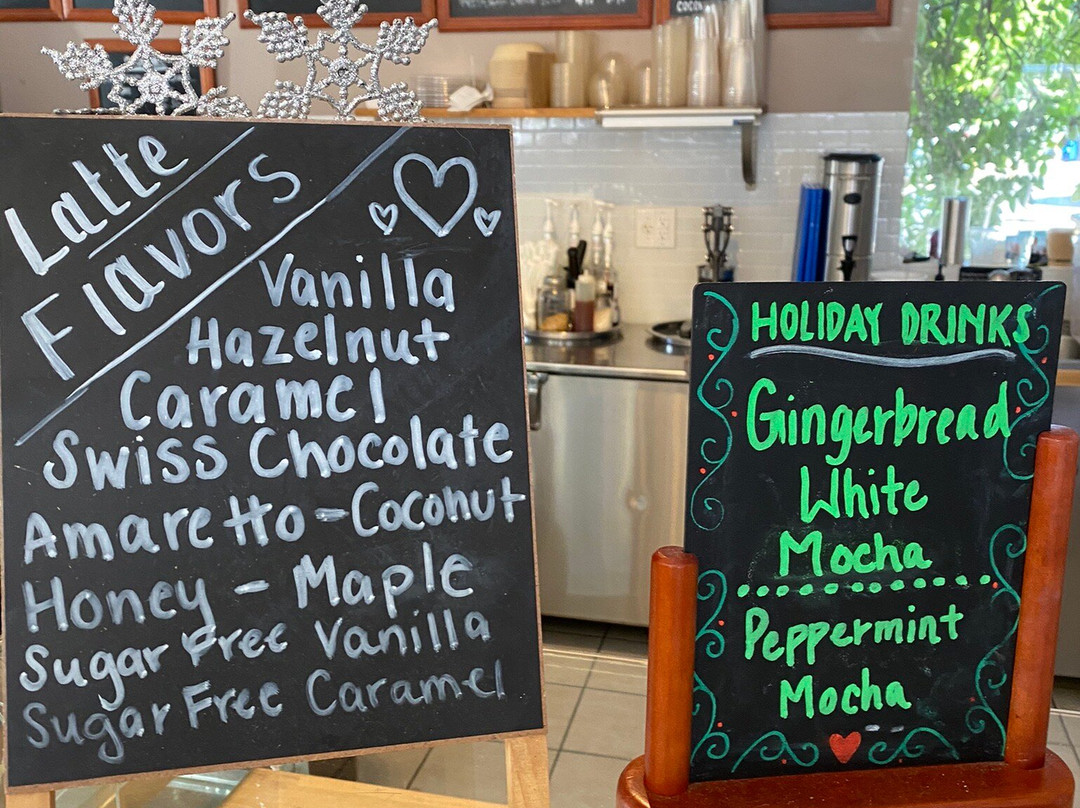 Latte
Flavors
Vanilla
Hazelnut
Caramel
Swiss Chocolate
Amaretto - Coconut
Honey - Maple
Sugar Free Vanilla
Sugar Free Caramel
HOLIDAY DRINKS
Gingerbread
White
Mocha
Peppermint
Mocha